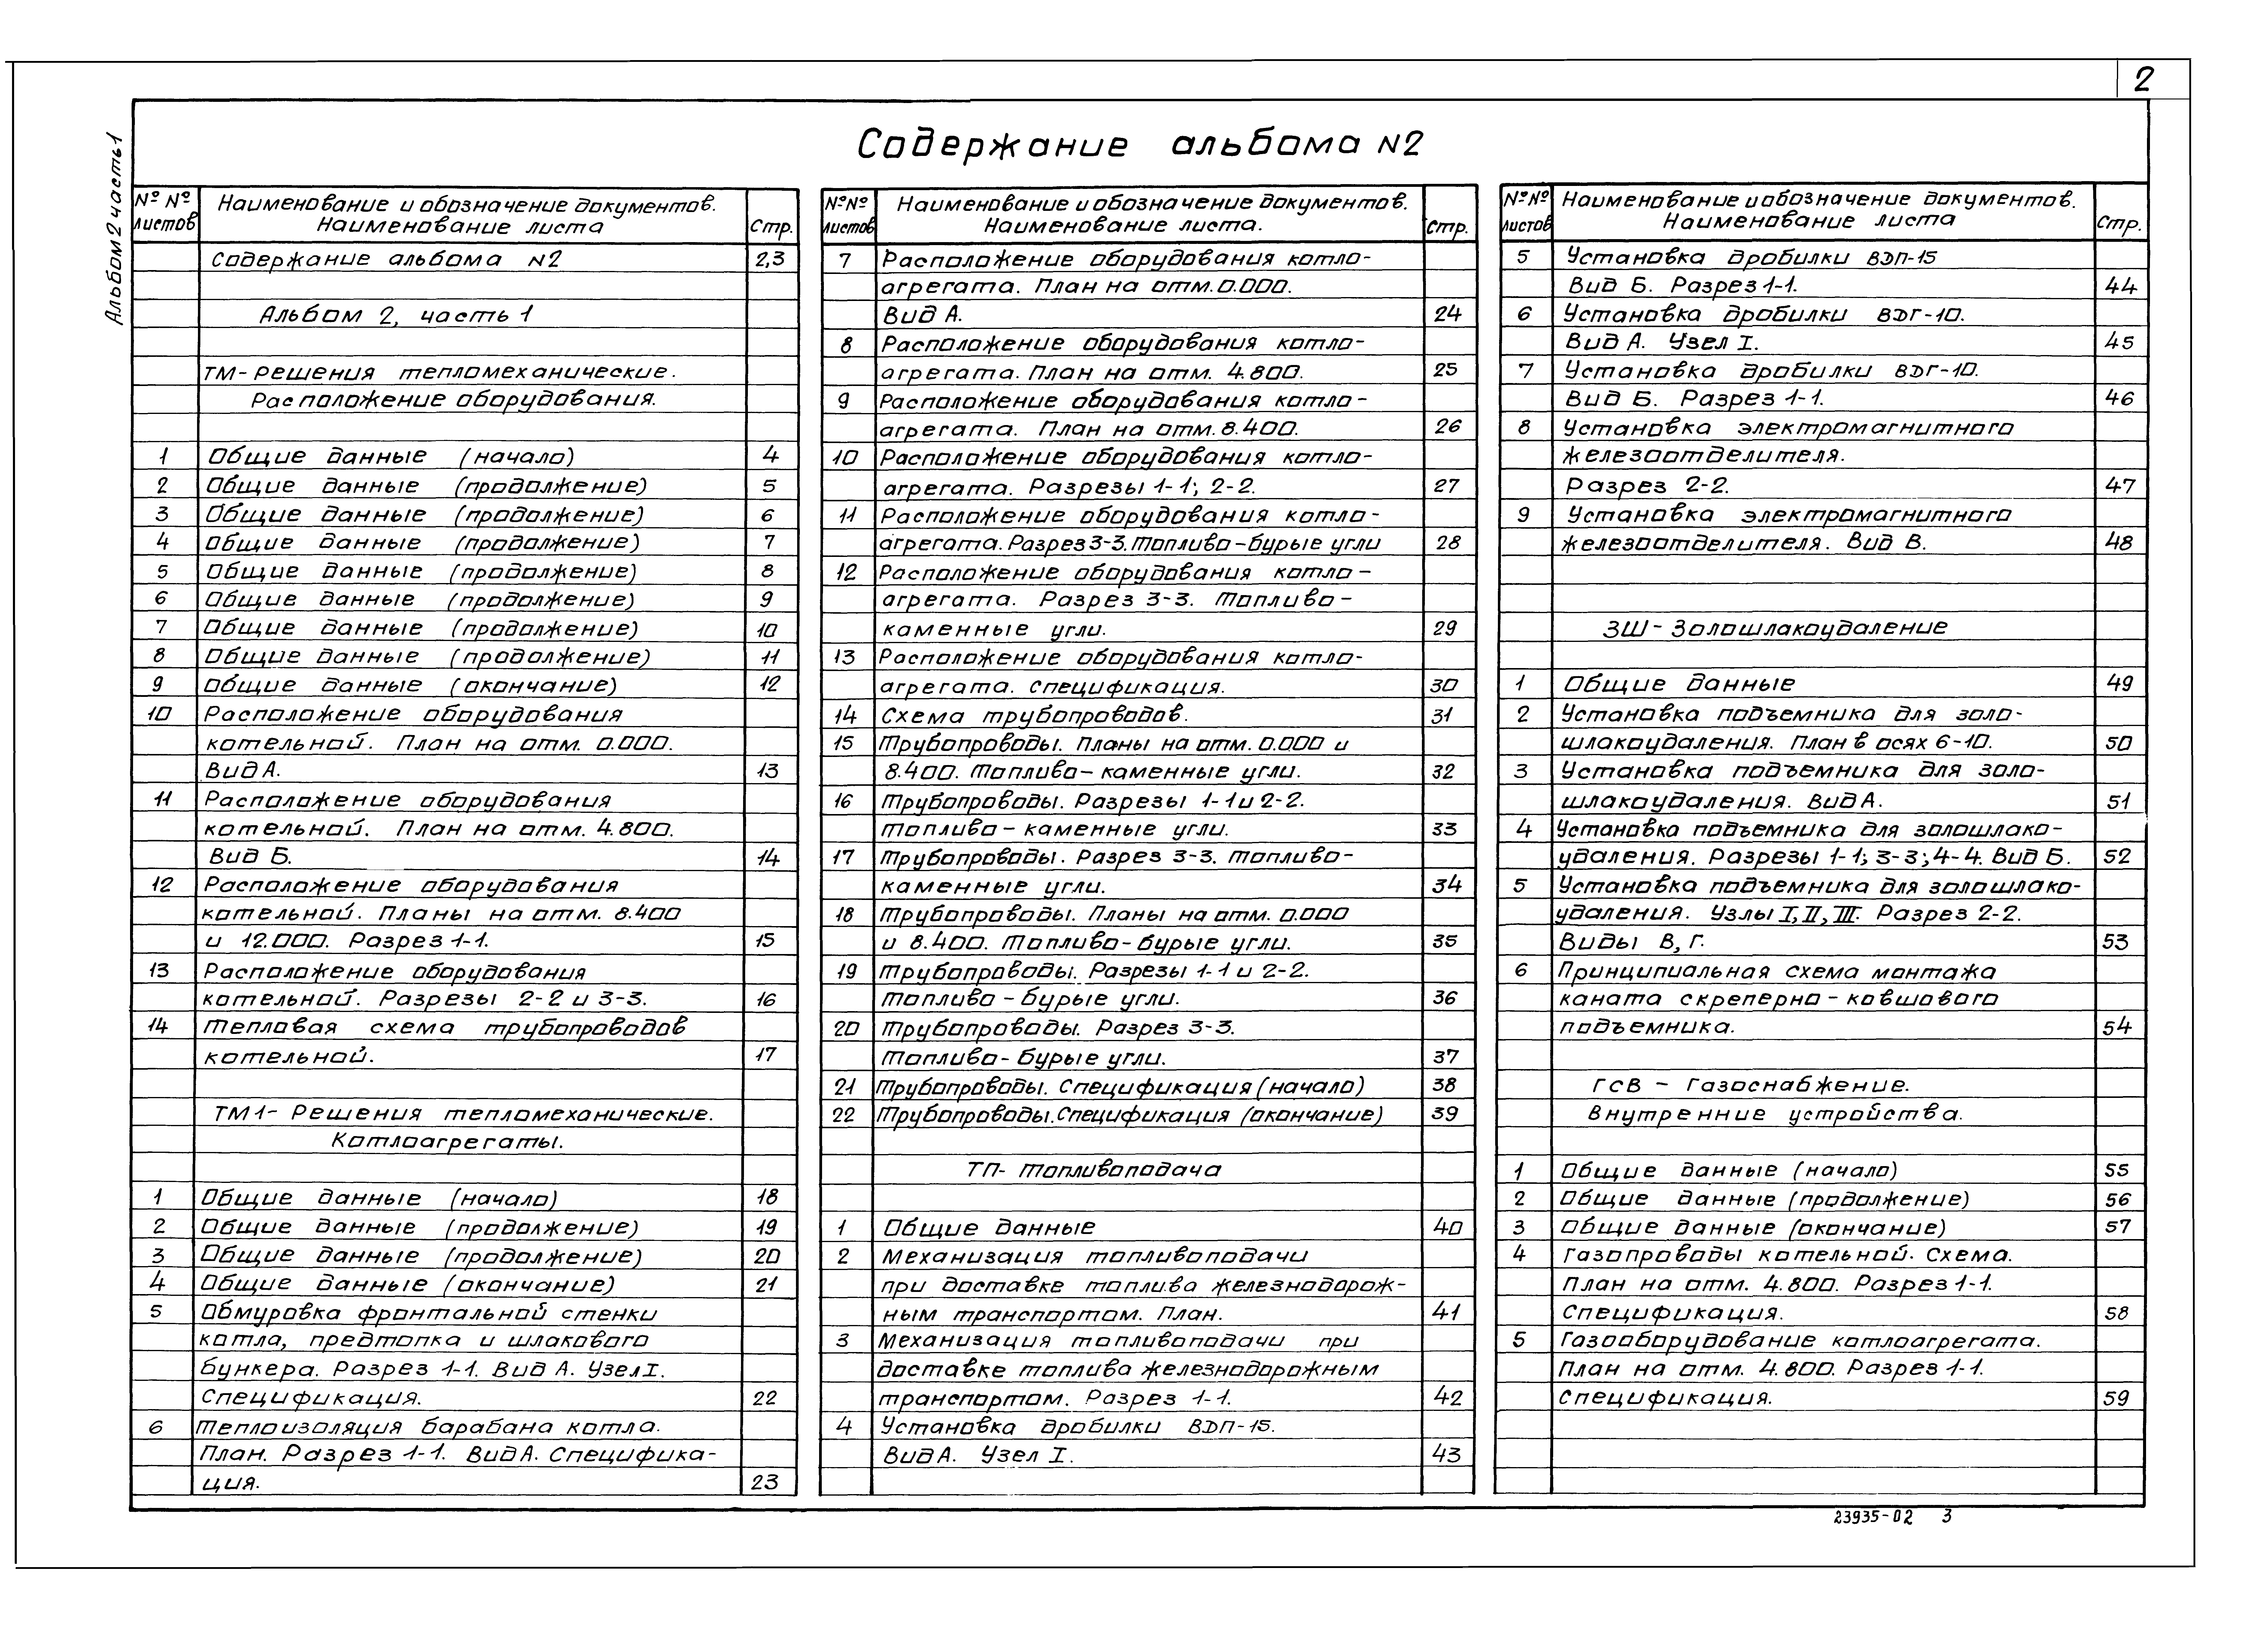 2
Альбом 2 часть 1
Содержание альбома N2
№ № листов Наименование и обозначение документов. Наименование листа Стр.
Содержание альбома N2 2,3
Альбом 2, часть 1
ТМ- Решения тепломеханические.
Расположение оборудования.
1 Общие данные (начало) 4
2 Общие данные (продолжение) 5
3 Общие данные (продолжение) 6
4 Общие данные (продолжение) 7
5 Общие данные (продолжение) 8
6 Общие данные (продолжение) 9
7 Общие данные (продолжение) 10
8 Общие данные (продолжение) 11
9 Общие данные (окончание) 12
10 Расположение оборудования
котельной. План на отм. 0.000.
Вид А. 13
11 Расположение оборудования
котельной. План на отм. 4.800.
Вид Б. 14
12 Расположение оборудования
котельной. Планы на отм. 8.400
и 12.000. Разрез 1-1. 15
13 Расположение оборудования
котельной. Разрезы 2-2 и 3-3. 16
14 Тепловая схема трубопроводов
котельной. 17
ТМ1- Решения тепломеханические.
Котлоагрегаты.
1 Общие данные (начало) 18
2 Общие данные (продолжение) 19
3 Общие данные (продолжение) 20
4 Общие данные (окончание) 21
5 Обмуровка фронтальной стенки
котла, предтопка и шлакового
бункера. Разрез 1-1. Вид А. Узел I.
Спецификация. 22
6 Теплоизоляция барабана котла.
План. Разрез 1-1. Вид А. Специфика-
ция. 23
№№ листов Наименование и обозначение документов. Наименование листа. Стр.
7 Расположение оборудования котло-
агрегата. План на отм. 0.000.
Вид А. 24
8 Расположение оборудования котло-
агрегата. План на отм. 4.800. 25
9 Расположение оборудования котло-
агрегата. План на отм. 8.400. 26
10 Расположение оборудования котло-
агрегата. Разрезы 1-1; 2-2. 27
11 Расположение оборудования котло-
агрегата. Разрез 3-3. Топливо-бурые угли 28
12 Расположение оборудования котло-
агрегата. Разрез 3-3. Топливо-
каменные угли. 29
13 Расположение оборудования котло-
агрегата. Спецификация. 30
14 Схема трубопроводов. 31
15 Трубопроводы. Планы на отм. 0.000 и
8.400. Топливо-каменные угли. 32
16 Трубопроводы. Разрезы 1-1 и 2-2.
Топливо-каменные угли. 33
17 Трубопроводы. Разрез 3-3. Топливо-
каменные угли. 34
18 Трубопроводы. Планы на отм. 0.000
и 8.400. Топливо-бурые угли. 35
19 Трубопроводы. Разрезы 1-1 и 2-2.
Топливо-бурые угли. 36
20 Трубопроводы. Разрез 3-3.
Топливо-бурые угли. 37
21 Трубопроводы. Спецификация (начало) 38
22 Трубопроводы. Спецификация (окончание) 39
ТП- Топливоподача
1 Общие данные 40
2 Механизация топливоподачи
при доставке топлива железнодорож-
ным транспортом. План. 41
3 Механизация топливоподачи при
доставке топлива железнодорожным
транспортом. Разрез 1-1. 42
4 Установка дробилки ВДП-15.
Вид А. Узел I. 43
№№ листов Наименование и обозначение документов. Наименование листа Стр.
5 Установка дробилки ВДП-15
Вид Б. Разрез 1-1. 44
6 Установка дробилки ВДГ-10.
Вид А. Узел I. 45
7 Установка дробилки ВДГ-10.
Вид Б. Разрез 1-1. 46
8 Установка электромагнитного
железоотделителя.
Разрез 2-2. 47
9 Установка электромагнитного
железоотделителя. Вид В. 48
ЗШ- Золошлакоудаление
1 Общие данные 49
2 Установка подъемника для золо-
шлакоудаления. План в осях 6-10. 50
3 Установка подъемника для золо-
шлакоудаления. Вид А. 51
4 Установка подъемника для золошлако-
удаления. Разрезы 1-1; 3-3; 4-4. Вид Б. 52
5 Установка подъемника для золошлако-
удаления. Узлы I, II, III. Разрез 2-2.
Виды В, Г. 53
6 Принципиальная схема монтажа
каната скреперно-ковшового
подъемника. 54
ГСВ - Газоснабжение.
Внутренние устройства.
1 Общие данные (начало) 55
2 Общие данные (продолжение) 56
3 Общие данные (окончание) 57
4 Газопроводы котельной. Схема.
План на отм. 4.800. Разрез 1-1.
Спецификация. 58
5 Газооборудование котлоагрегата.
План на отм. 4.800. Разрез 1-1.
Спецификация. 59
23935-02 3